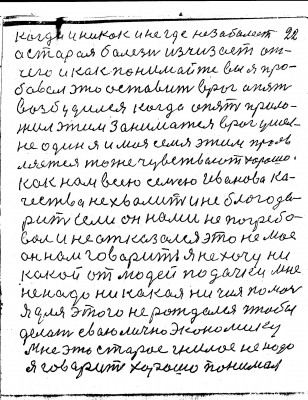 когда и никак и негде не забалеет 22
а старая балезн изчизает от-
чего и как понимайте вы я про-
бовал это оставит врог опят
возбудился когда опят прило-
жил этим Заниматся врог ушел
не один я и моя семя этим прояв
ляется тоже чувствают хорошо.
как нам всею семею Иванова ка-
чества не хвалит и не благода-
рит если он нами не потребо-
вал и не отказался это не мое
он нам говорить я не хочу ни
какой от людей подачки мне
не надо ни какая ни чия помоч
я для этого не рождался чтобы
делать сваю лично Экономику
Мне это старое гнилое не надо
я говорить хорошо понимал